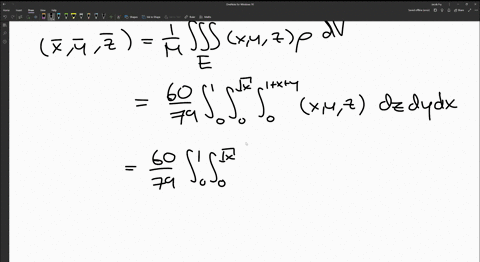 (x̄, ȳ, z̄) = 1/M ∭_E (x,y,z) ρ dV
= 60/79 ∫_0^1 ∫_0^√x ∫_0^{1+x+y} (x,y,z) dz dy dx
= 60/79 ∫_0^1 ∫_0^√x